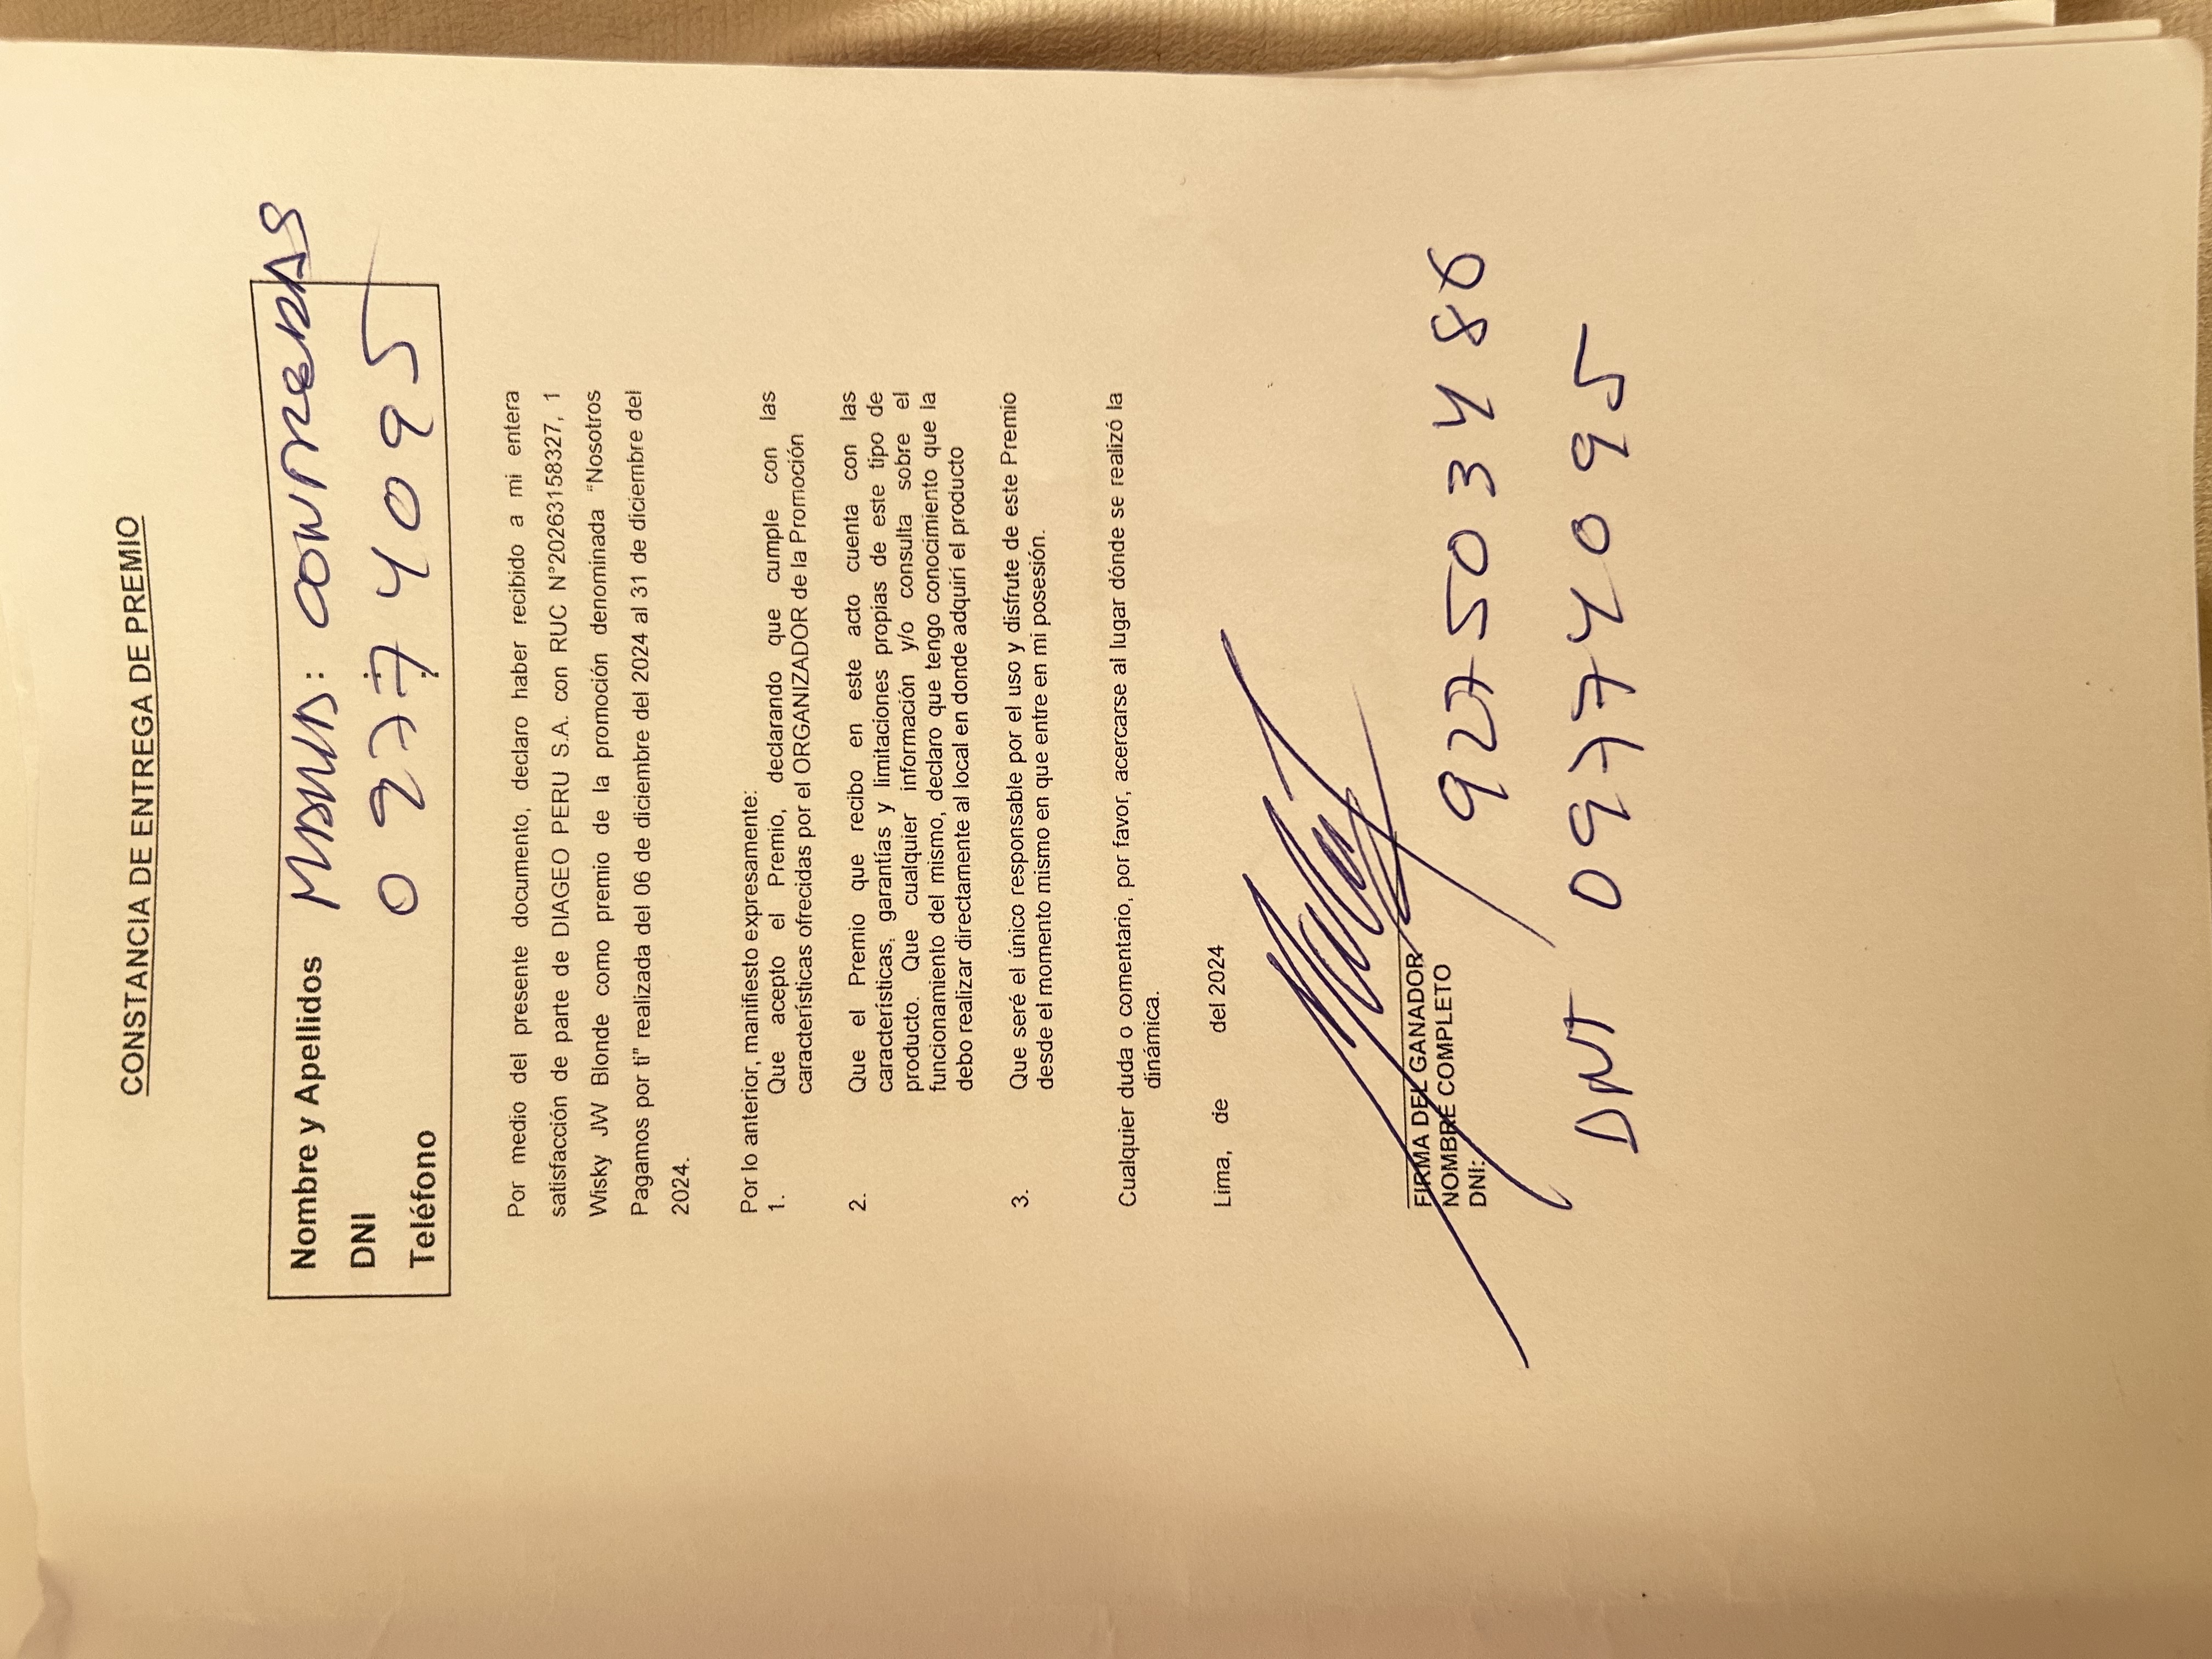 CONSTANCIA DE ENTREGA DE PREMIO
Nombre y Apellidos : MARIA CONTRERAS
DNI : 09774095
Teléfono :
Por medio del presente documento, declaro haber recibido a mi entera
satisfacción de parte de DIAGEO PERU S.A. con RUC N°20263158327, 1
Wisky JW Blonde como premio de la promoción denominada “Nosotros
Pagamos por ti” realizada del 06 de diciembre del 2024 al 31 de diciembre del
2024.
Por lo anterior, manifiesto expresamente:
1. Que acepto el Premio, declarando que cumple con las
características ofrecidas por el ORGANIZADOR de la Promoción
2. Que el Premio que recibo en este acto cuenta con las
características, garantías y limitaciones propias de este tipo de
producto. Que cualquier información y/o consulta sobre el
funcionamiento del mismo, declaro que tengo conocimiento que la
debo realizar directamente al local en donde adquirí el producto
3. Que seré el único responsable por el uso y disfrute de este Premio
desde el momento mismo en que entre en mi posesión.
Cualquier duda o comentario, por favor, acercarse al lugar dónde se realizó la
dinámica.
Lima, de del 2024
FIRMA DEL GANADOR
NOMBRE COMPLETO
DNI:
927503486
DNI 09774095